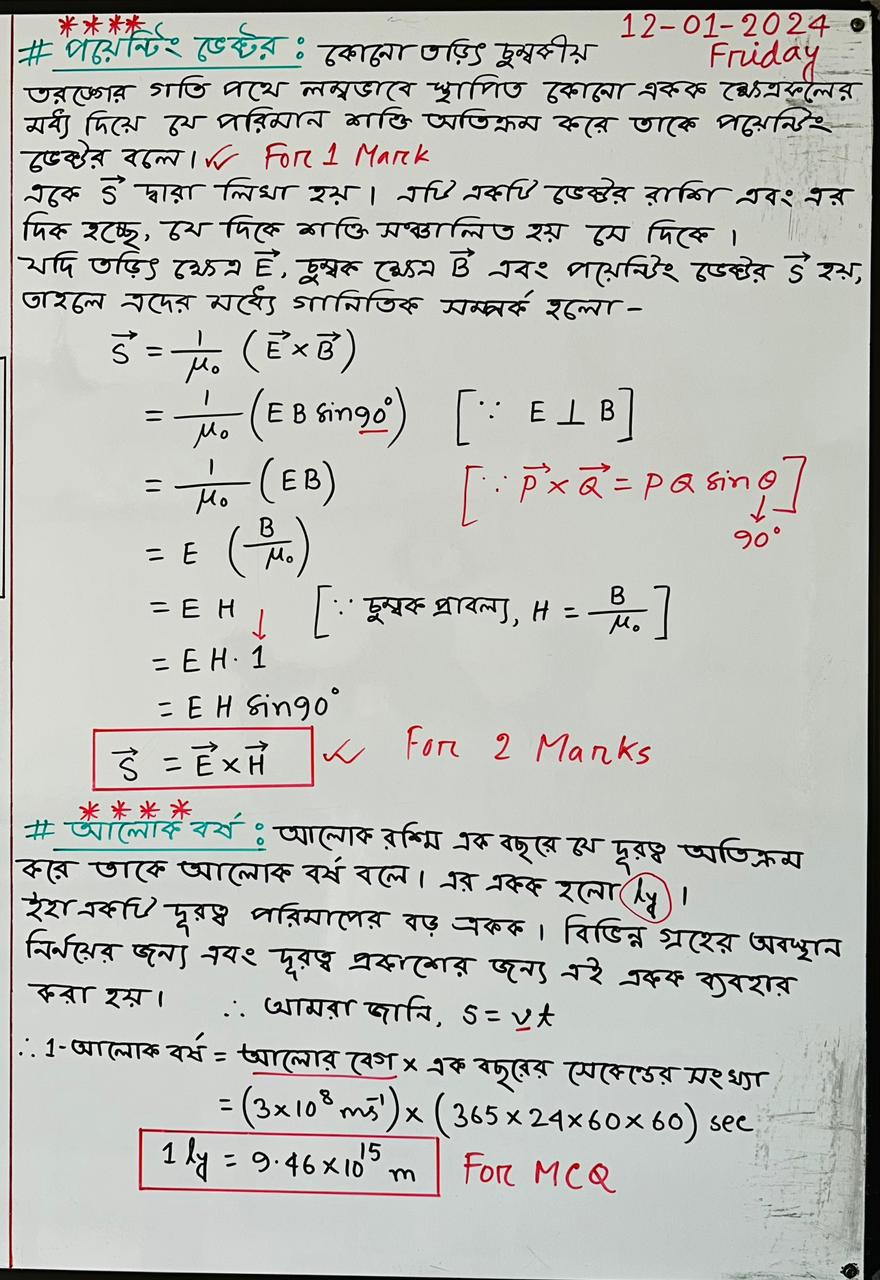 **** 12-01-2024
# পয়েন্টিং ভেক্টর : কোনো তড়িৎ চুম্বকীয় Friday
তরঙ্গের গতি পথে লম্বভাবে স্থাপিত কোনো একক ক্ষেত্রফলের
মধ্য দিয়ে যে পরিমান শক্তি অতিক্রম করে তাকে পয়েন্টিং
ভেক্টর বলে। ✓✓ For 1 Mark
একে S⃗ দ্বারা লিখা হয়। এটি একটি ভেক্টর রাশি এবং এর
দিক হচ্ছে, যে দিকে শক্তি সঞ্চালিত হয় সে দিকে।
যদি তড়িৎ ক্ষেত্র E⃗, চুম্বক ক্ষেত্র B⃗ এবং পয়েন্টিং ভেক্টর S⃗ হয়,
তাহলে এদের মধ্যে গানিতিক সম্পর্ক হলো –
S⃗ = 1/μ₀ (E⃗ × B⃗)
= 1/μ₀ (E B sin90°) [∵ E ⊥ B]
= 1/μ₀ (EB) [∵ P⃗ × Q⃗ = P Q sin θ]
↓
90°
= E (B/μ₀)
= E H ↓ [∵ চুম্বক প্রাবল্য, H = B/μ₀]
= E H · 1
= E H sin90°
S⃗ = E⃗ × H⃗ ✓✓ For 2 Marks
****
# আলোক বর্ষ : আলোক রশ্মি এক বছরে যে দূরত্ব অতিক্রম
করে তাকে আলোক বর্ষ বলে। এর একক হলো ly।
ইহা একটি দূরত্ব পরিমাপের বড় একক। বিভিন্ন গ্রহের অবস্থান
নির্নয়ের জন্য এবং দূরত্ব প্রকাশের জন্য এই একক ব্যবহার
করা হয়। ∴ আমরা জানি, S = vt
∴ 1-আলোক বর্ষ = আলোর বেগ × এক বছরের সেকেন্ডের সংখ্যা
= (3×10⁸ ms⁻¹) × (365×24×60×60) sec
1 ly = 9.46×10¹⁵ m For MCQ